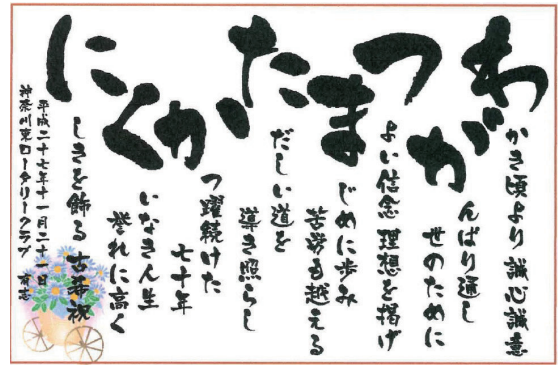 わかき頃より 誠心誠意
がんばり通し
世のために
つよい信念 理想を掲げ
まじめに歩み
苦労も越える
ただしい道を
導き照らし
かつ躍続けた
七十年
くいなき人生
誉れに高く
にしきを飾る 古希祝
平成二十七年十一月二十一日
神奈川東ロータリークラブ 有志